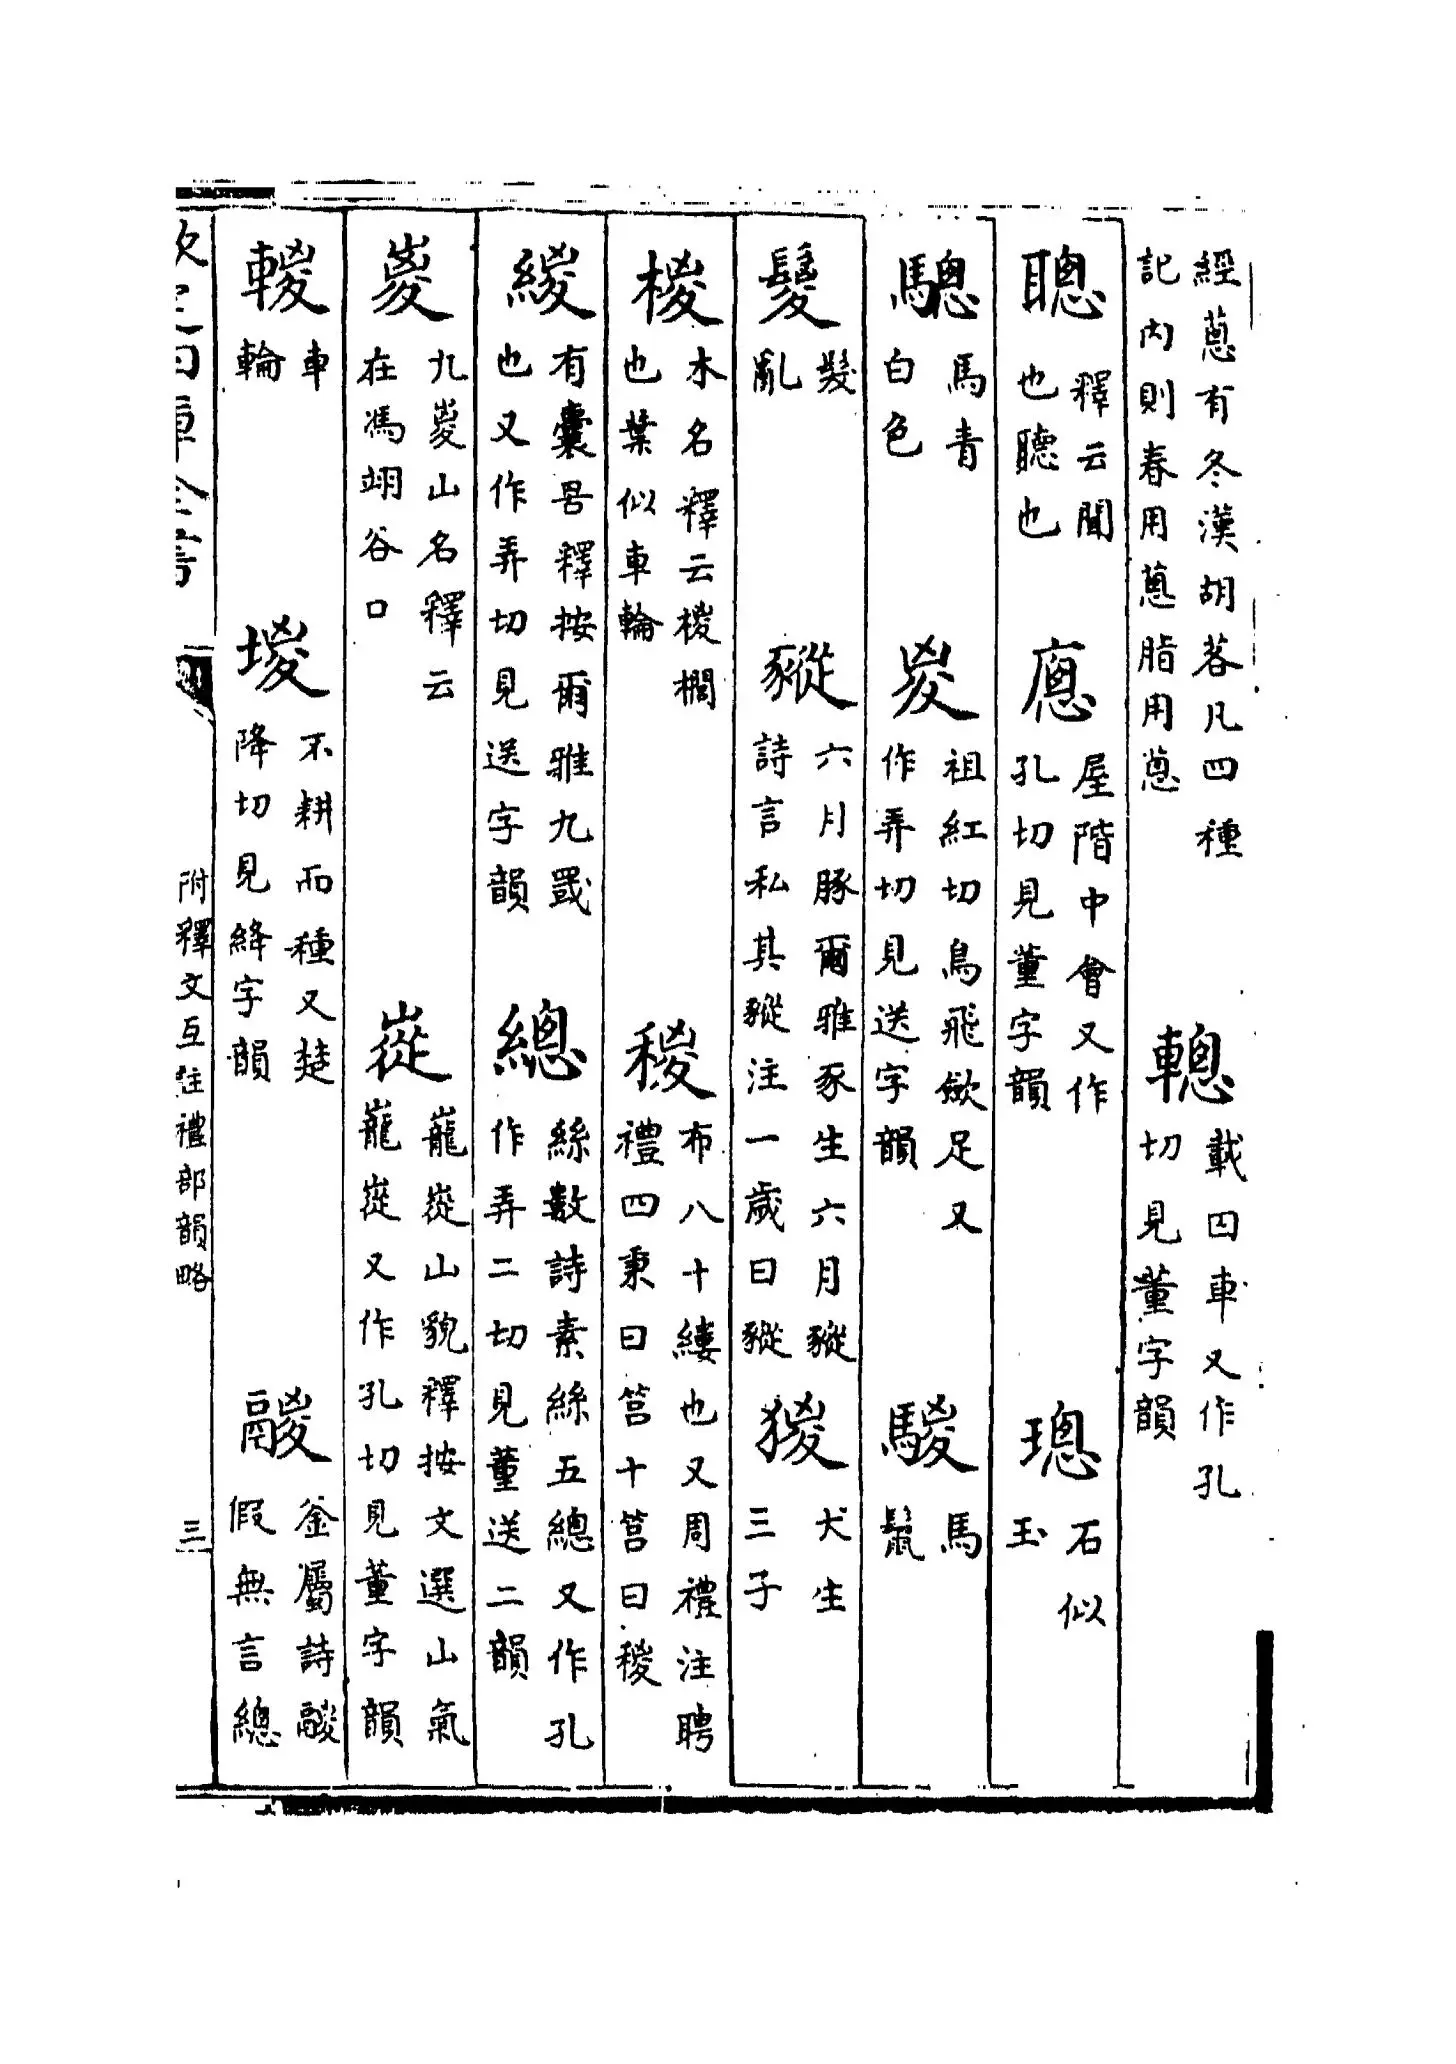 經蔥有冬漢胡茖凡四種
記內則春用蔥脂用蔥
轗載囚車又作孔
切見董字韻
聰釋云聞
也聽也
廰屋階中會又作
孔切見董字韻
璁石似
玉
驄馬青
白色
㚇祖紅切鳥飛斂足又
作弄切見送字韻
騣馬
鬛
鬉髮
亂
豵六月豚爾雅豕生六月豵
詩言私其豵注一歲曰豵
猣犬生
三子
椶木名釋云椶櫚
也葉似車輪
稯布八十縷也又周禮注聘
禮四秉曰筥十筥曰稯
緵有囊罟釋按爾雅九罭
也又作弄切見送字韻
總絲數詩素絲五總又作孔
作弄二切見董送二韻
嵏九嵏山名釋云
在馮翊谷口
嵸巃嵸山貌釋按文選山氣
巃嵸又作孔切見董字韻
䡯車
輪
堫不耕而種又楚
降切見絳字韻
鬷釜屬詩鬷
假無言總
欽定四庫全書
附釋文互註禮部韻略
三